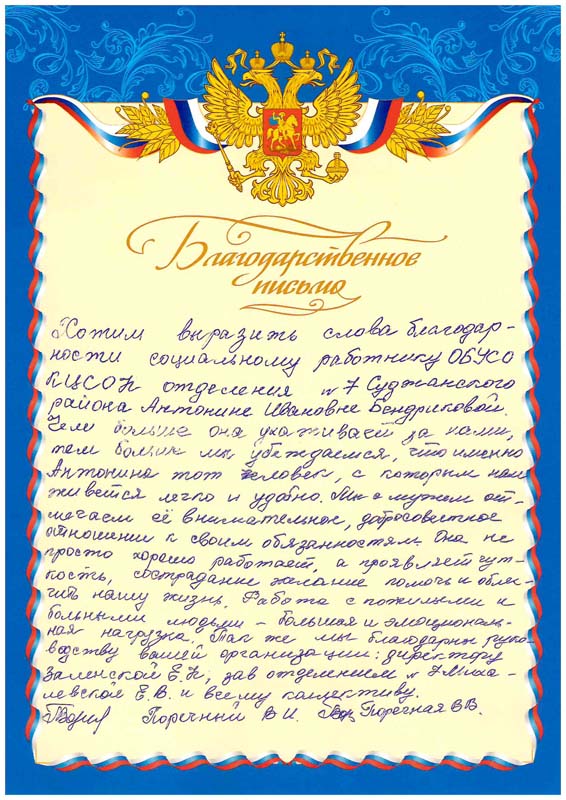 Благодарственное
письмо
Хотим выразить слова благодар-
ности социальному работнику ОБУСО
КЦСОН отделения №7 Суджанского
района Антонине Ивановне Бендриковой.
Чем больше она ухаживает за нами,
тем больше мы убеждаемся, что именно
Антонина тот человек, с которым нам
живется легко и удобно. Мы с мужем от-
мечаем её внимательное, добросовестное
отношении к своим обязанностям. Она не
просто хорошо работает, а проявляет чут-
кость, сострадание желание помочь и облег-
чить нашу жизнь. Работа с пожилыми и
больными людьми - большая и эмоциональ-
ная нагрузка. Так же мы благодарны руко-
водству вашей организации: директору
Заленской Е.Н, зав отделением №7 Миха-
левской Е.В. и всему коллективу.
Поречный В И. Поречная В В.